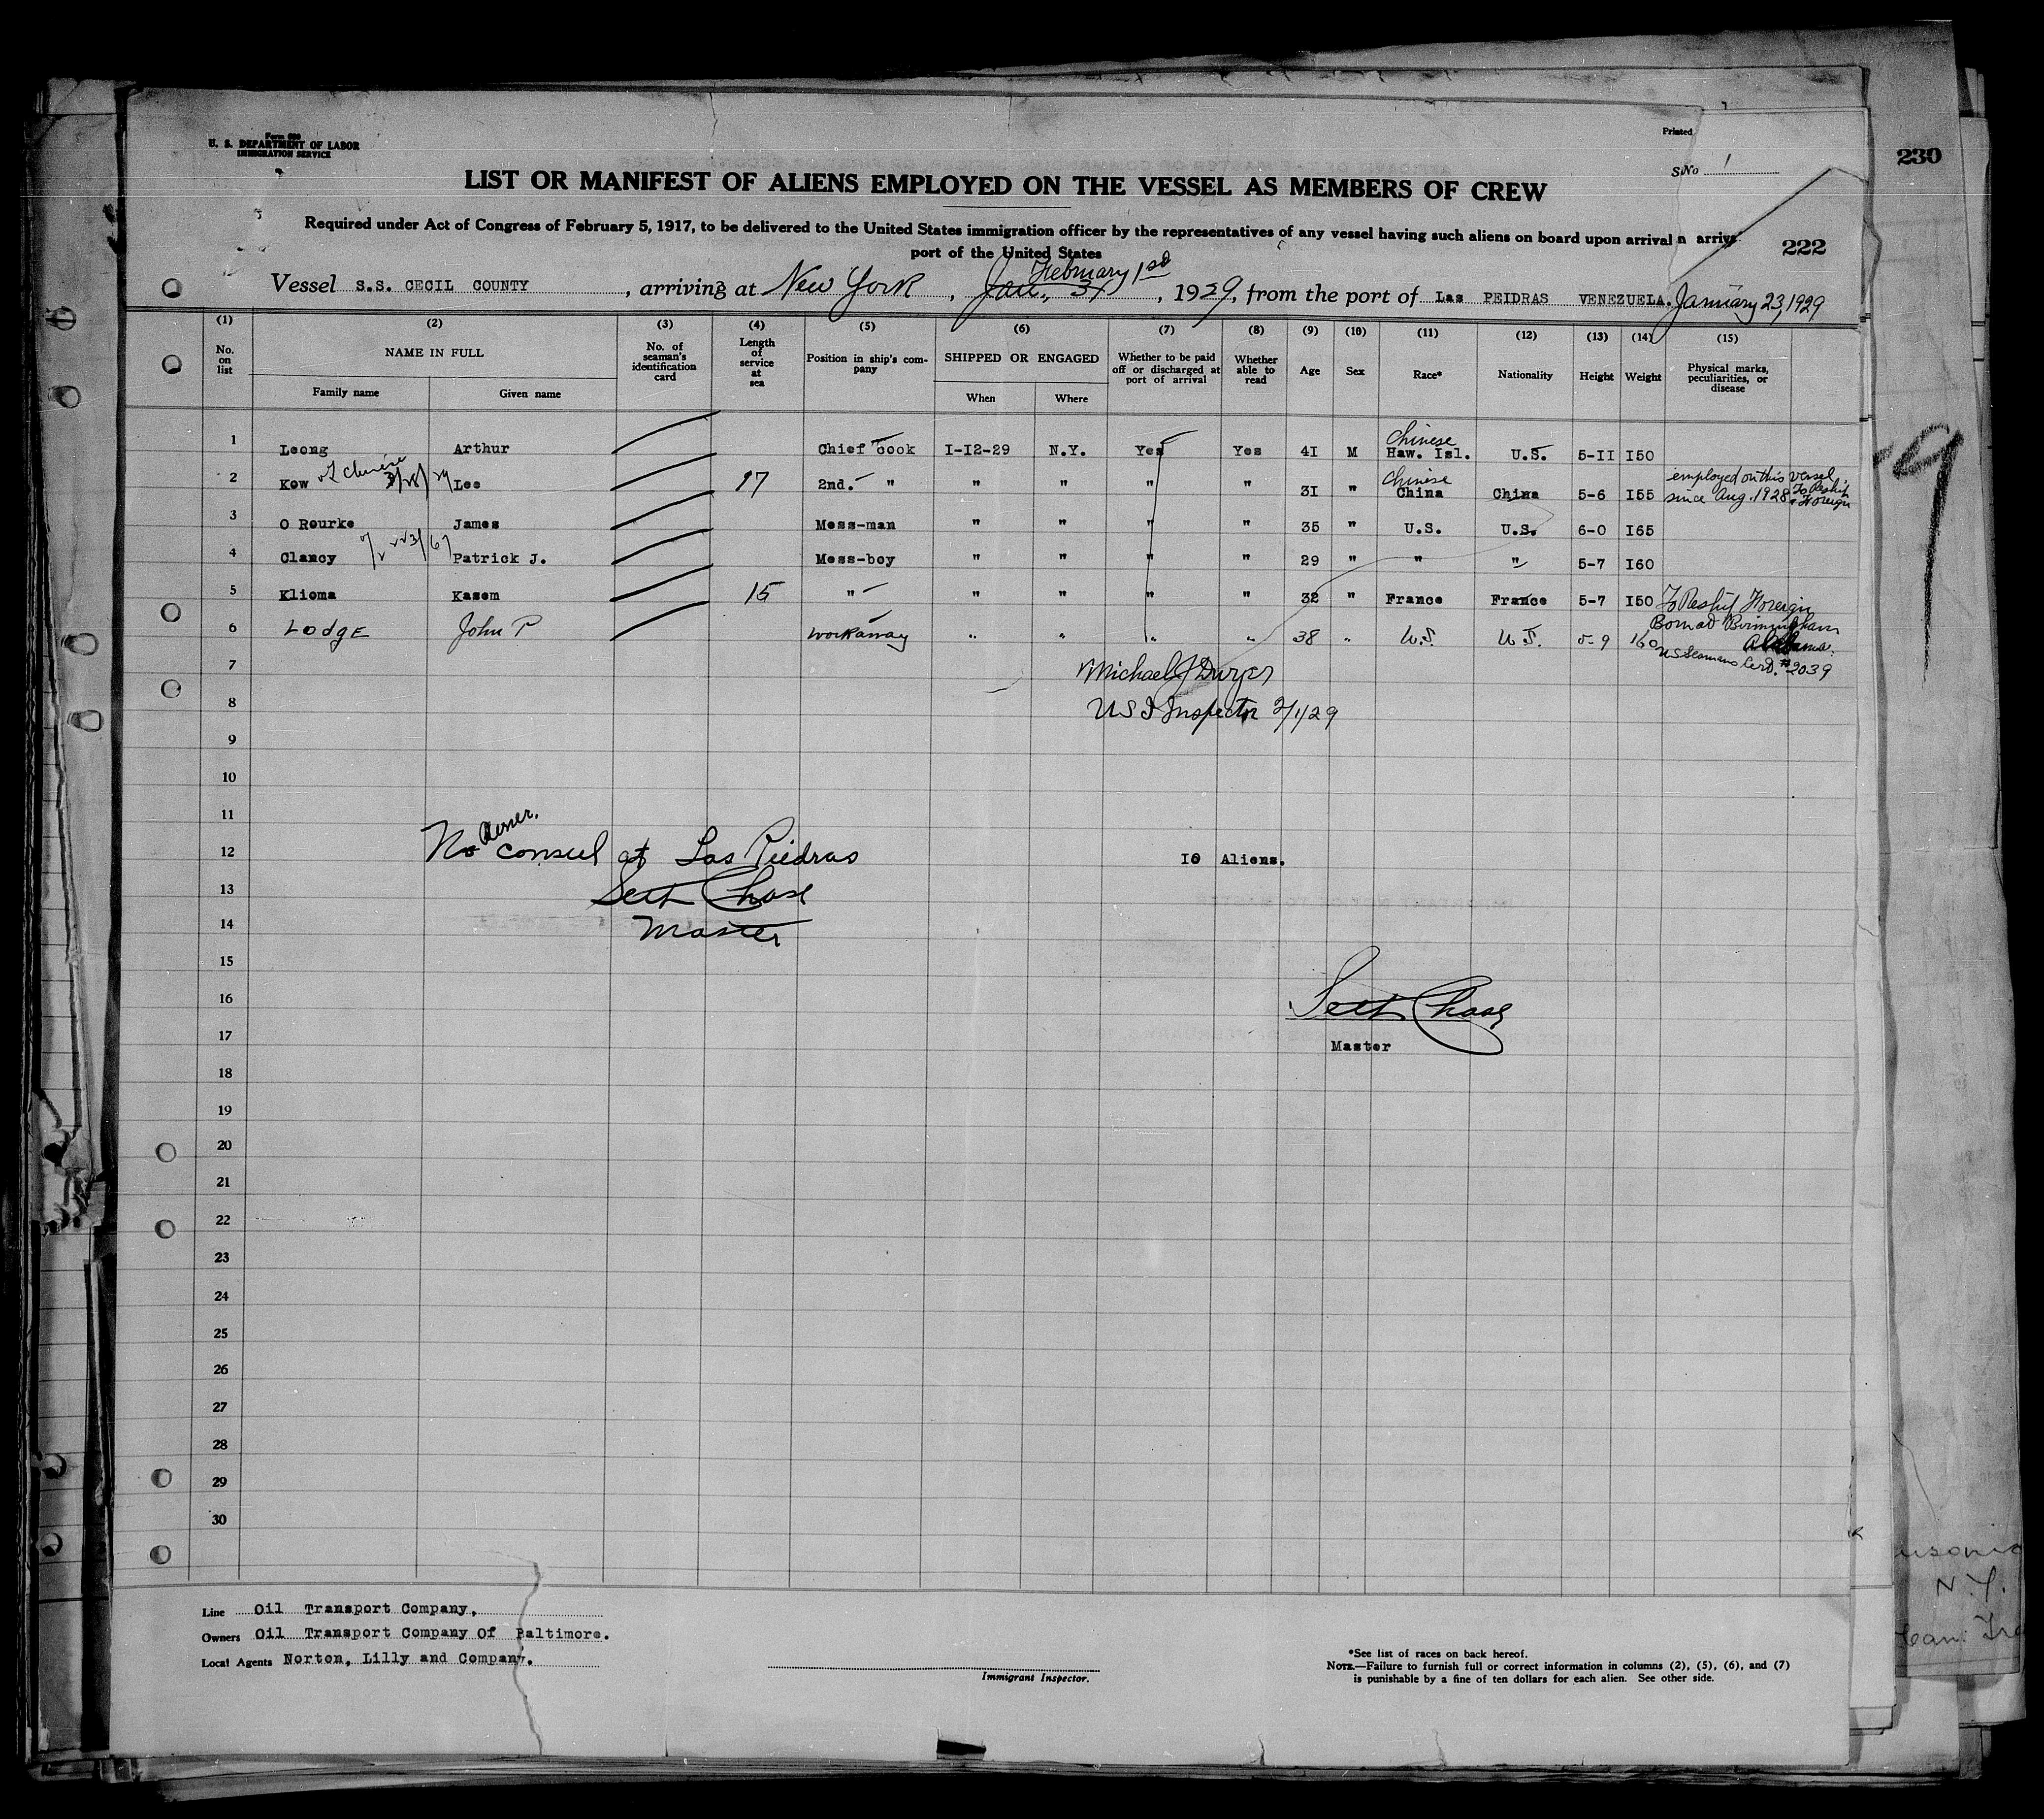 230
Form 680
U. S. DEPARTMENT OF LABOR
IMMIGRATION SERVICE
Printed
S No 1
LIST OR MANIFEST OF ALIENS EMPLOYED ON THE VESSEL AS MEMBERS OF CREW
Required under Act of Congress of February 5, 1917, to be delivered to the United States immigration officer by the representatives of any vessel having such aliens on board upon arrival
port of the United States
222
February 1st
Vessel S.S. CECIL COUNTY , arriving at New York , Jan. 31 , 1929, from the port of Las PEIDRAS VENEZUELA. January 23, 1929
(1) (2) (3) (4) (5) (6) (7) (8) (9) (10) (11) (12) (13) (14) (15)
No. on list NAME IN FULL No. of seaman's identification card Length of service at sea Position in ship's company SHIPPED OR ENGAGED Whether to be paid off or discharged at port of arrival Whether able to read Age Sex Race* Nationality Height Weight Physical marks, peculiarities, or disease
Family name Given name When Where
Chinese
1 Leong Arthur Chief Cook I-I2-29 N.Y. Yes Yes 4I M Haw. Isl. U.S. 5-II I50
Chinese employed on this vessel
2 Kow Chinese 3/28/29 Lee 17 2nd. " " " " " 3I " China China 5-6 I55 since Aug. 1928 To Reship Foreign
3 O Rourke James Mess-man " " " " 35 " U.S. U.S. 6-0 I65
4 Clancy Patrick J. Mess-boy " " " " 29 " " " 5-7 I60
5 Klioma Kasem 15 " " " " " 32 " France France 5-7 I50 To Reship Foreign
6 Lodge John P Workaway " " " " 38 " U.S U.S. 5-9 160 Born at Birmingham
Alabama.
US Seamans Cerd. #2039
7 Michael J Dwyer
8 U S I Inspector 2/1/29
9
10
11
Amer.
12 No consul at Las Piedras I0 Aliens.
13 Seth Chase
14 Master
15
16 Seth Chase
17 Master
18
19
20
21
22
23
24
25
26
27
28
29
30
N.Y.
Line Oil Transport Company,
Owners Oil Transport Company Of Baltimore.
Local Agents Norton, Lilly and Company.
Immigrant Inspector.
*See list of races on back hereof.
NOTE.—Failure to furnish full or correct information in columns (2), (5), (6), and (7)
is punishable by a fine of ten dollars for each alien. See other side.